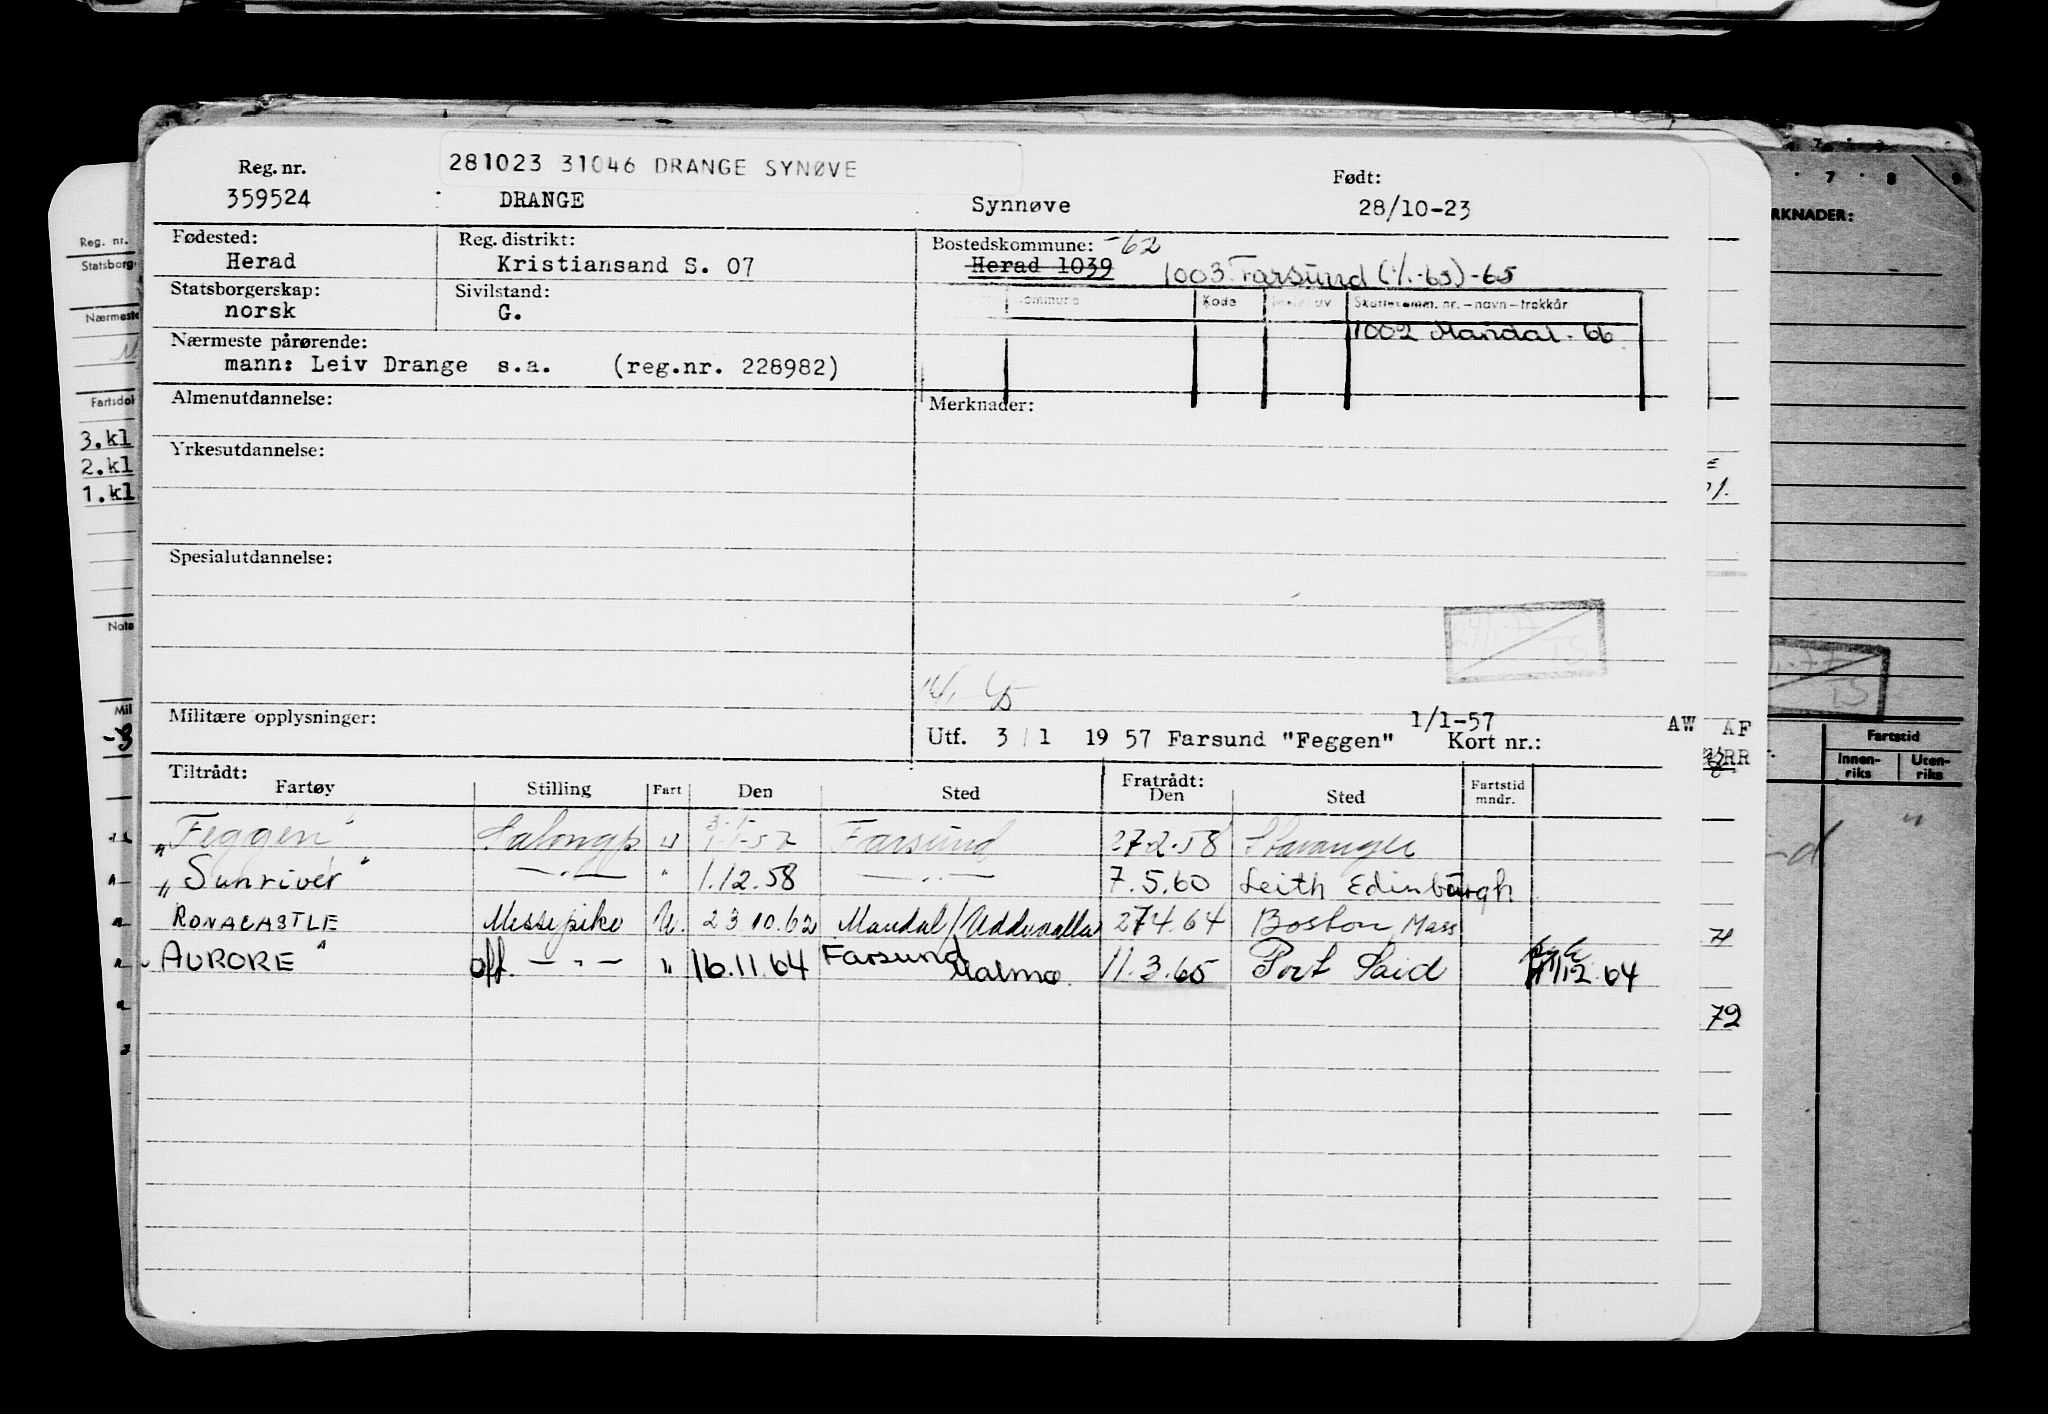 281023 31046 DRANGE SYNØVE
Reg. nr. Født:
359524 DRANGE Synnøve 28/10-23
Fødested: Reg. distrikt: Bostedskommune: -62
Herad Kristiansand S. 07 Herad 1039 1003 Farsund (1/1-63)-65
Statsborgerskap: Sivilstand: Kode Skattekomm. nr. - navn - trekkår
norsk G. 1002 Mandal - 66
Nærmeste pårørende:
mann: Leiv Drange s.a. (reg.nr. 228982)
Almenutdannelse: Merknader:
Yrkesutdannelse:
Spesialutdannelse:
Militære opplysninger: 1/1-57
Utf. 3/1 1957 Farsund "Feggen" Kort nr.: AW AF
RR
Tiltrådt: Fratrådt:
Fartøy Stilling Fart Den Sted Den Sted Fartstid mndr.
"Feggen" Salongp. U 3-1- 1-1-57 Farsund 27.2.58 Stavanger
"Sunriver" —"— " 1.12.58 —"— 7.5.60 Leith Edinburgh
RONACASTLE Messepike U. 23.10.62 Mandal/Uddevalla 27.4.64 Boston, Mass
AURORE" off. —"— " 16.11.64 Farsund Malmø. 11.3.65 Port Said 12.64
71
72
Reg. nr.
Statsborge
Nærmeste
Fartsdok
3.kl
2.kl
1.kl
Nota
Mil
-3
7 8 9
RKNADER:
Fartstid
Innen-riks Uten-riks